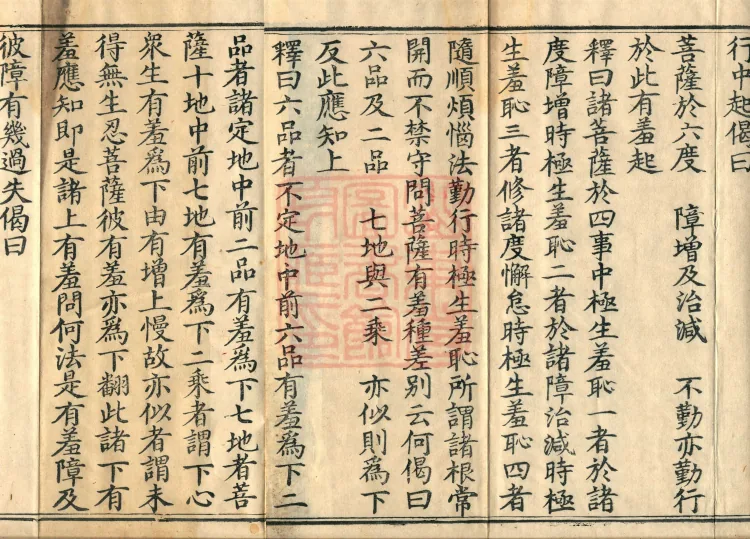 行中起偈曰
菩薩於六度　障增及治減　不勤亦勤行
於此有羞起
釋曰諸菩薩於四事中極生羞恥一者於諸
度障增時極生羞恥二者於諸障治減時極
生羞恥三者修諸度懈怠時極生羞恥四者
隨順煩惱法勤行時極生羞恥所謂諸根常
開而不禁守問菩薩有羞種差別云何偈曰
六品及二品　七地與二乘　亦似則為下
反此應知上
釋曰六品者不定地中前六品有羞為下二
品者諸定地中前二品有羞為下七地者菩
薩十地中前七地有羞為下二乘者謂下心
衆生有羞為下由有增上慢故亦似者謂未
得無生忍菩薩彼有羞亦為下翻此諸下有
羞應知即是諸上有羞問何法是有羞障及
彼障有幾過失偈曰